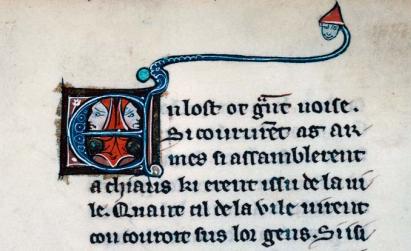 En lost ot gñt noise.
Si coururēt as ar
mes si assamblerent
a chiaus ki erent issu de la ui
le. Quant cil de la vile virent
con couroit sus lor gens. Si isi